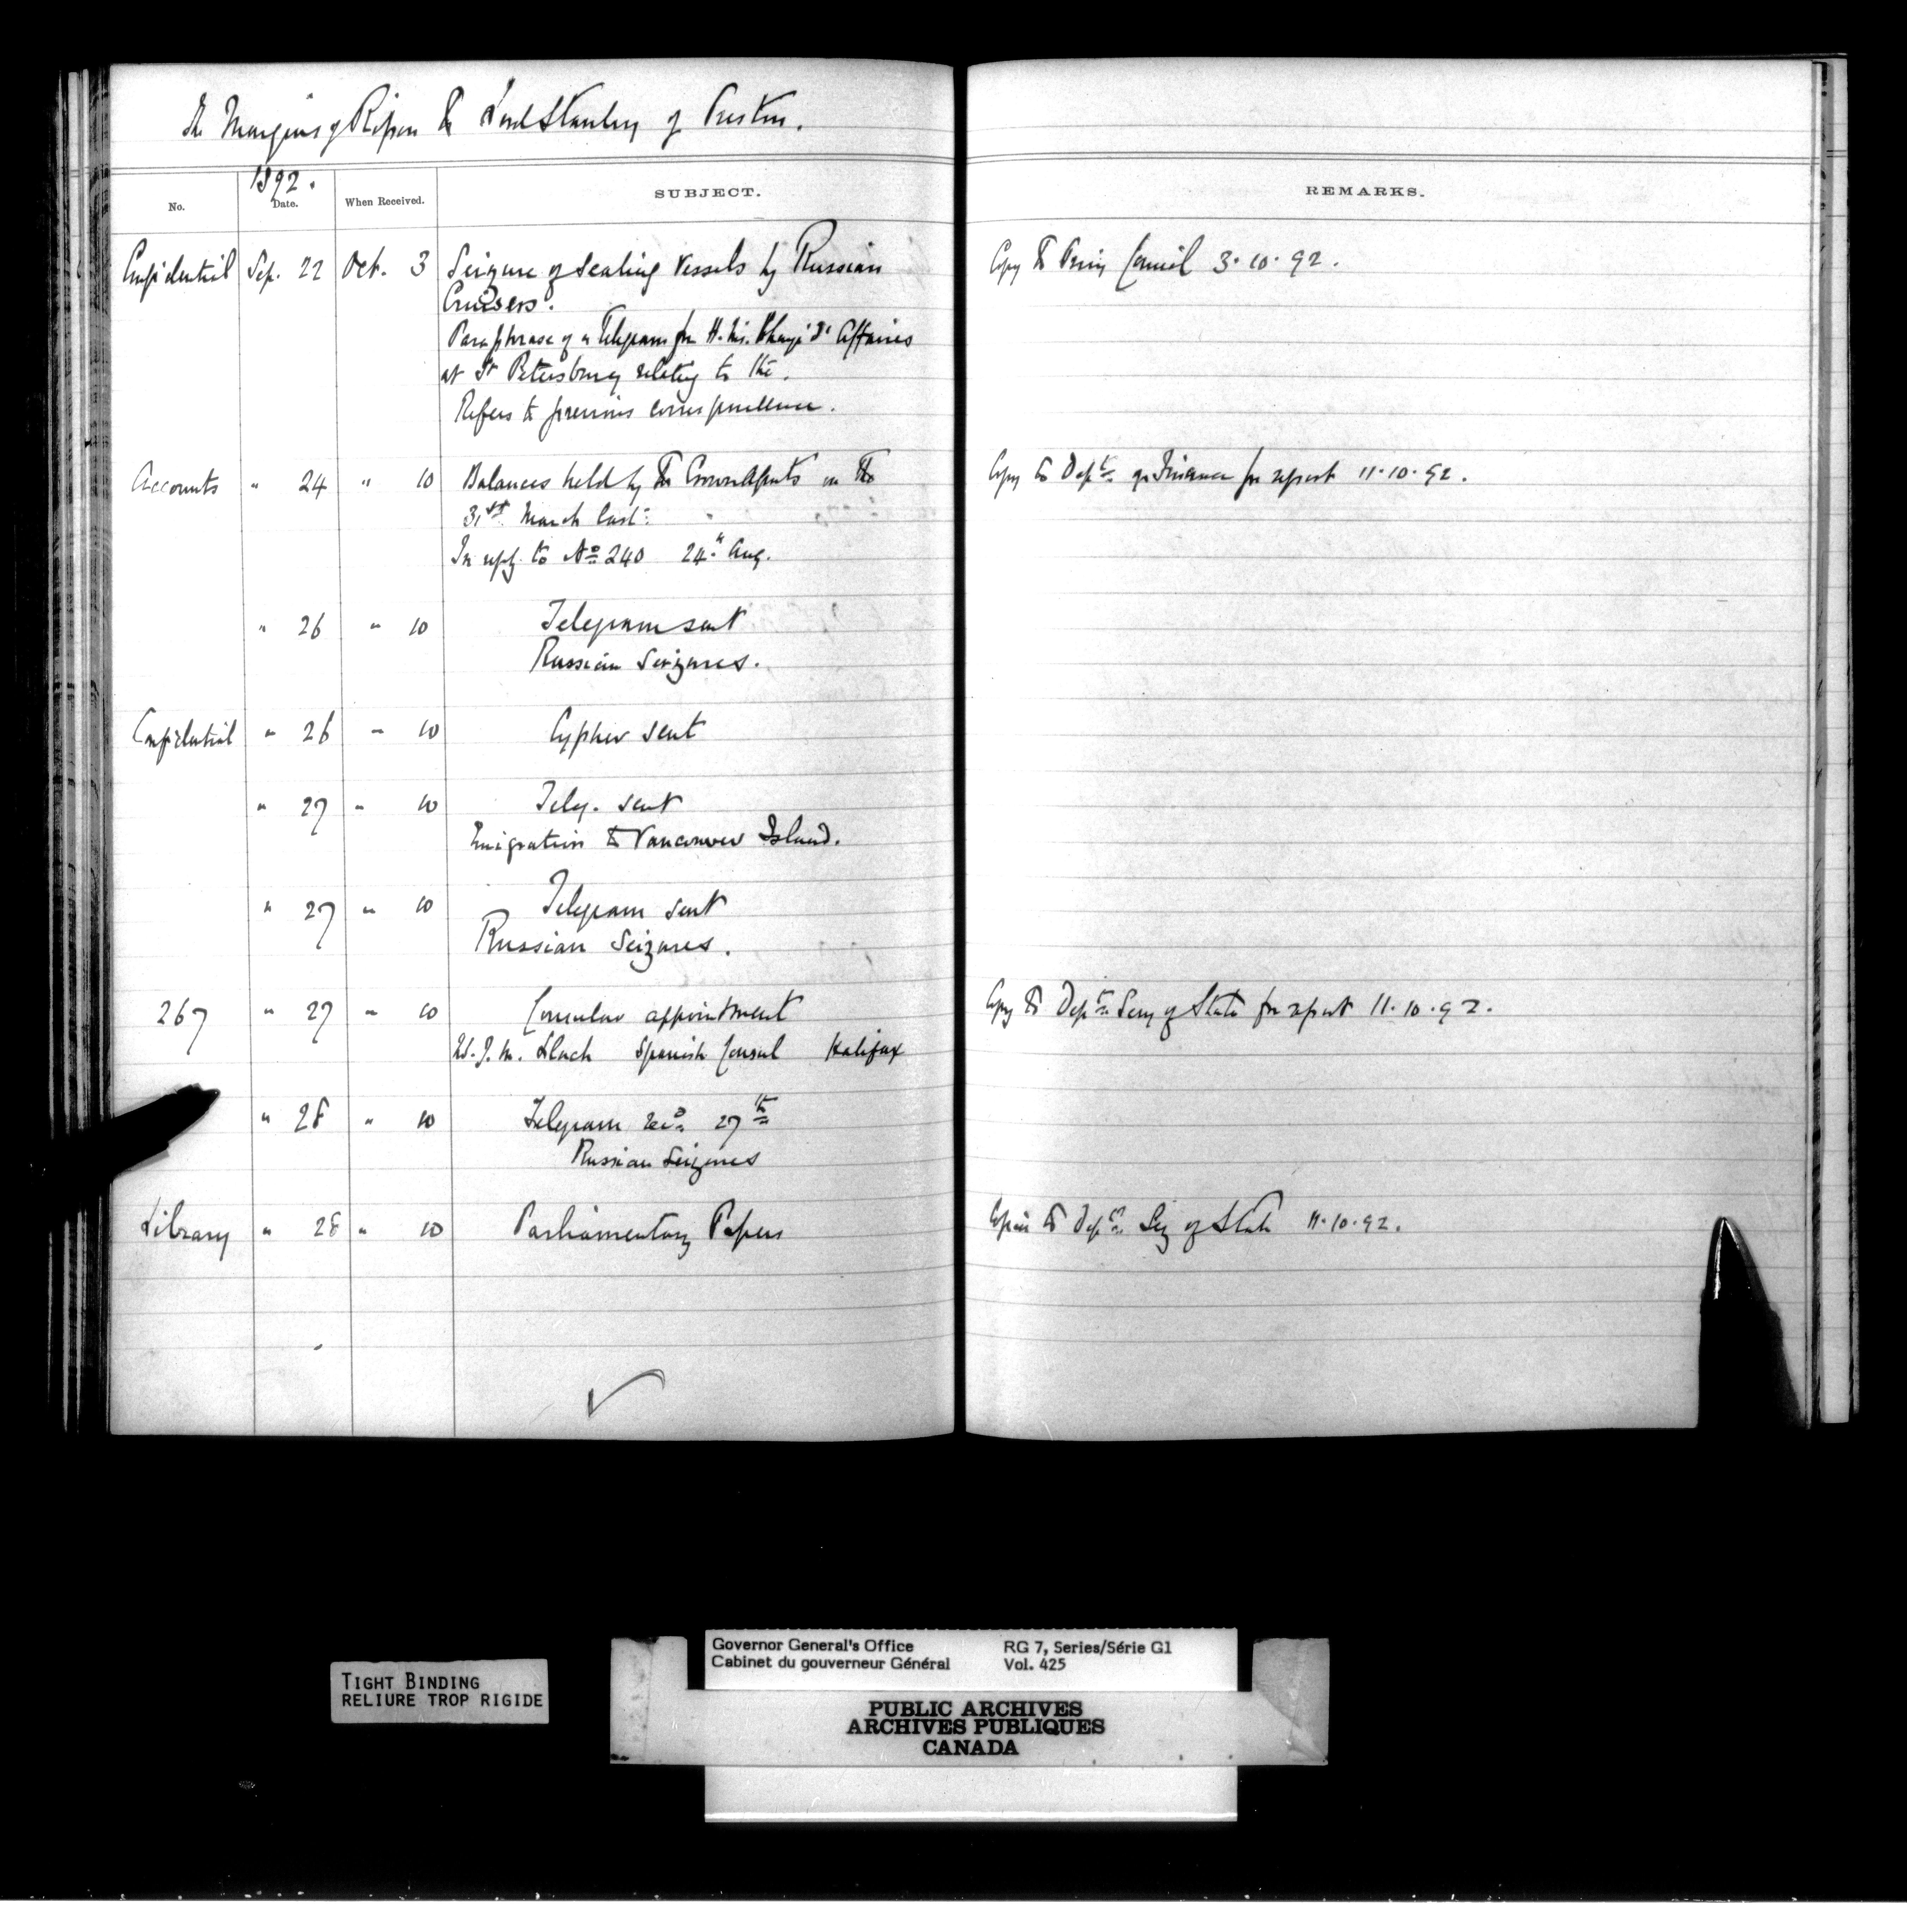 The Marquis of Ripon to Lord Stanley of Preston.
1892.
No. Date. When Received. SUBJECT. REMARKS.
Confidential Sep. 22 Oct. 3 Seizure of Sealing Vessels by Russian Copy to Privy Council 3.10.92.
Cruisers.
Paraphrase of a Telegram fm H.M. Chargé d' Affaires
at St Petersburg relating to the.
Refers to previous correspondence.
Accounts " 24 " 10 Balances held by the Crown Agents on the Copy to Dept. of Finance for report 11.10.92.
31st March last.
In reply to No 240 24th Aug.
" 26 " 10 Telegram sent
Russian Seizures.
Confidential " 26 " 10 Cypher sent
" 27 " 10 Teleg. sent
Emigration to Vancouver Island.
" 27 " 10 Telegram sent
Russian Seizures.
267 " 27 " 10 Consular appointment Copy to Dept. Secy of State for report 11.10.92.
J. M. Spanish Consul Halifax
" 28 " 10 Telegram recd. 27th
Russian Seizures
Library " 28 " 10 Parliamentary Papers Copies to Dept. Secy of State 11.10.92.
TIGHT BINDING
RELIURE TROP RIGIDE
Governor General's Office RG 7, Series/Série G1
Cabinet du gouverneur Général Vol. 425
PUBLIC ARCHIVES
ARCHIVES PUBLIQUES
CANADA